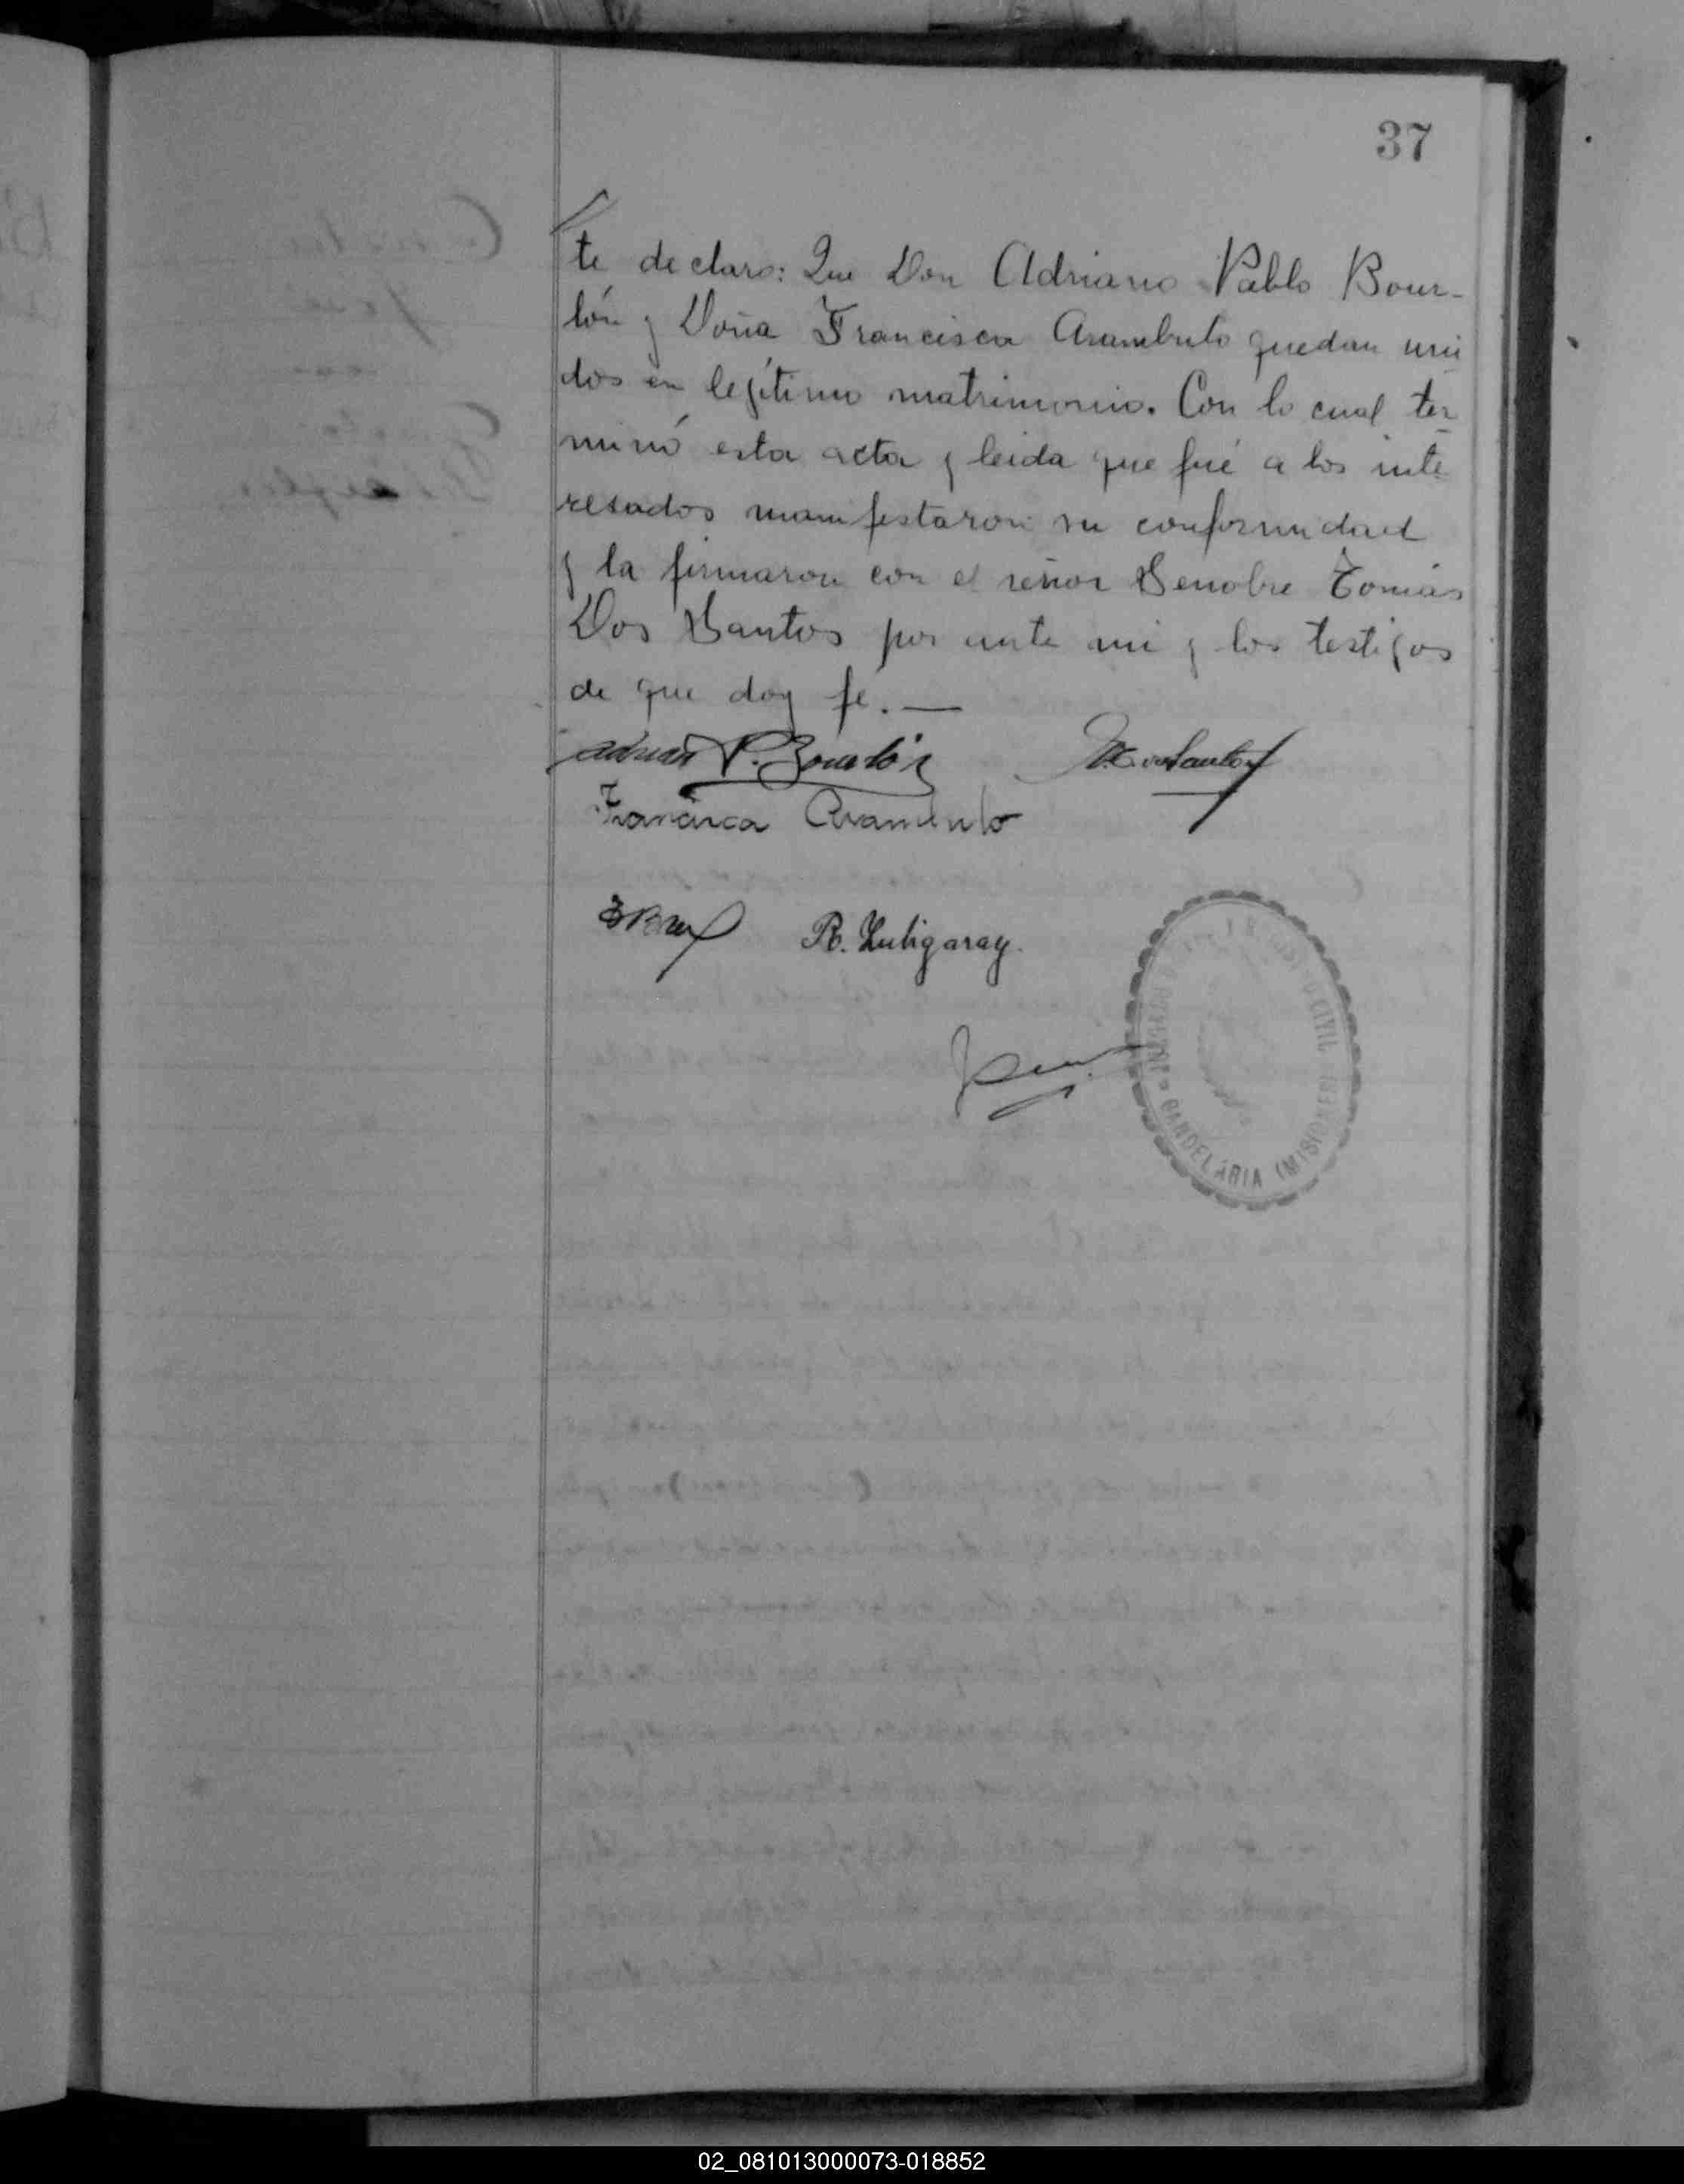 37
te declaro: Que Don Adriano Pablo Bour-
lón y Doña Francisca Arambulo quedan uni
dos en legítimo matrimonio. Con lo cual ter
minó esta acta y leida que fué a los inte
resados manifestaron su conformidad
y la firmaron con el señor Senobre Tomás
Dos Santos por ante mi y los testigos
de que doy fé. —
Adriano P. Bourlón
Francisca Arambulo
R. Zuligaray.
JUZGADO DE CIVIL
CANDELARIA (MISIONES)
02_081013000073-018852